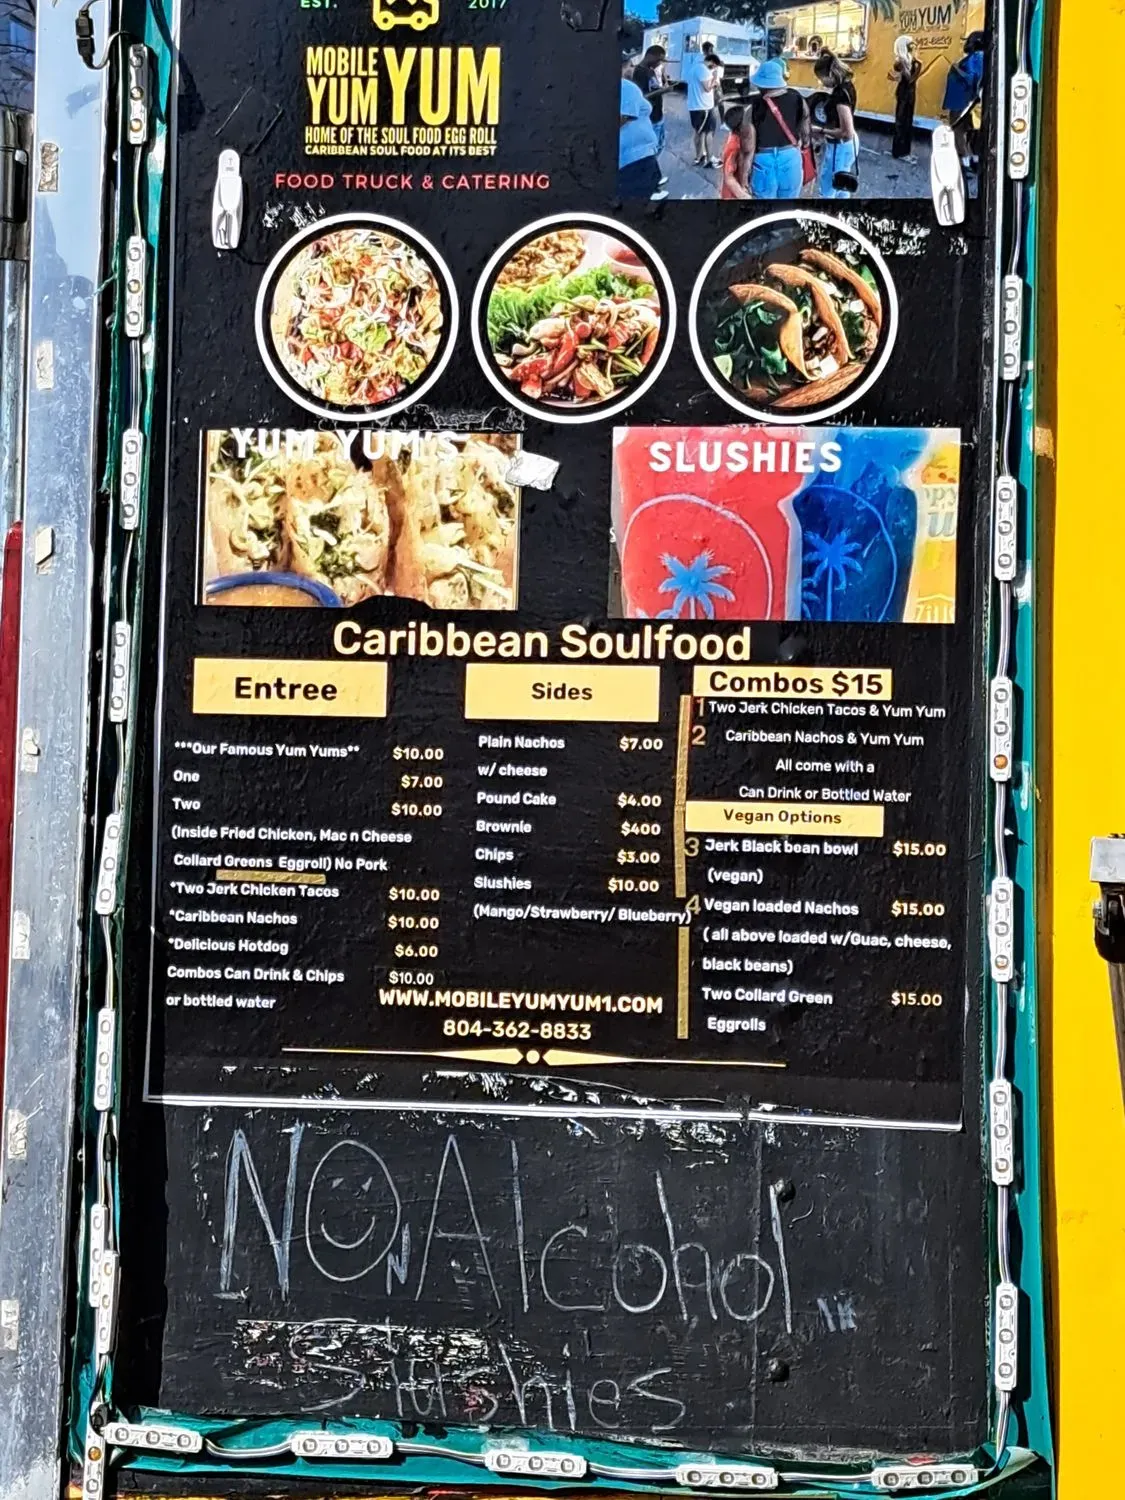 EST. 2017
MOBILE
YUM YUM
HOME OF THE SOUL FOOD EGG ROLL
CARIBBEAN SOUL FOOD AT ITS BEST
FOOD TRUCK & CATERING
YUM
YUM YUM'S
SLUSHIES
Caribbean Soulfood
Entree
***Our Famous Yum Yums** $10.00
One $7.00
Two $10.00
(Inside Fried Chicken, Mac n Cheese
Collard Greens Eggroll) No Pork
*Two Jerk Chicken Tacos $10.00
*Caribbean Nachos $10.00
*Delicious Hotdog $6.00
Combos Can Drink & Chips $10.00
or bottled water
Sides
Plain Nachos $7.00
w/ cheese
Pound Cake $4.00
Brownie $400
Chips $3.00
Slushies $10.00
(Mango/Strawberry/ Blueberry)
Combos $15
1 Two Jerk Chicken Tacos & Yum Yum
2 Caribbean Nachos & Yum Yum
All come with a
Can Drink or Bottled Water
Vegan Options
3 Jerk Black bean bowl $15.00
(vegan)
4 Vegan loaded Nachos $15.00
( all above loaded w/Guac, cheese,
black beans)
Two Collard Green $15.00
Eggrolls
WWW.MOBILEYUMYUM1.COM
804-362-8833
NON Alcohol
Slushies